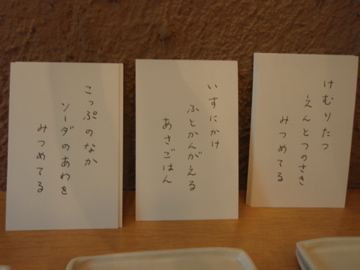 けむりたつ
えんとつのさき
みつめてる
いすにかけ
ふとかんがえる
あさごはん
こっぷのなか
ソーダのあわを
みつめてる